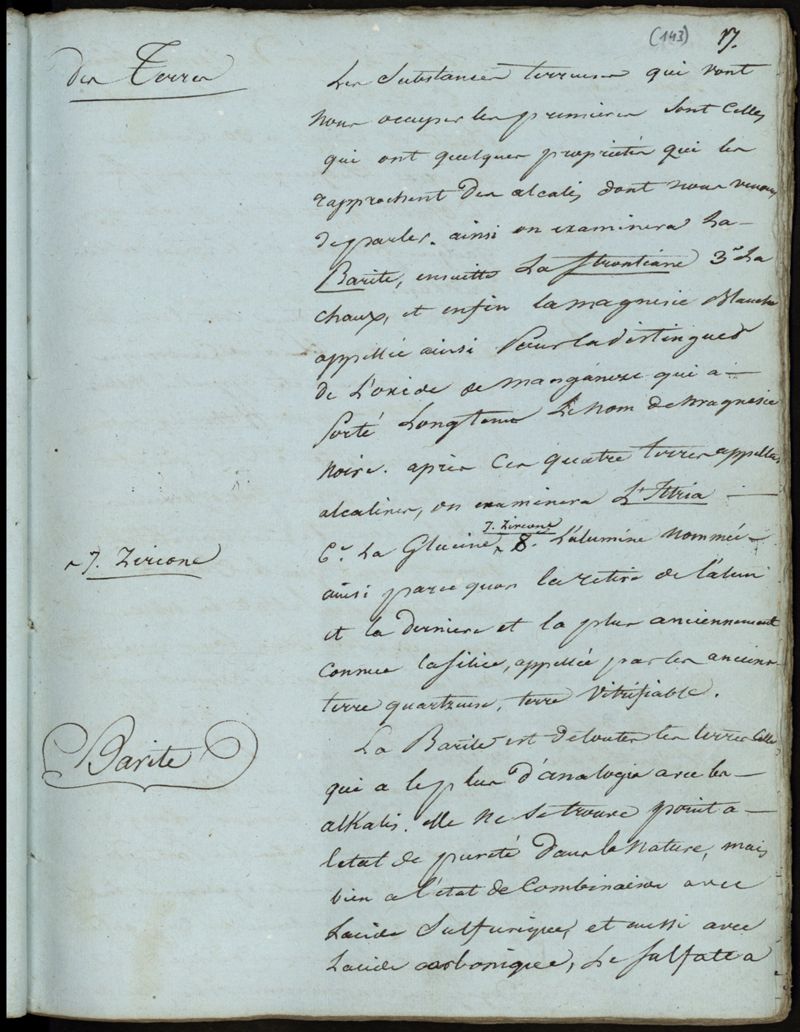 (143) 17.
des Terres
Les Substances terreuses qui vont
nous occuper les premieres sont celles
qui ont quelques proprietés qui les
rapprochent des alcalis dont nous venons
de parler. ainsi on examinera La
Barite, ensuitte La Strontiane 3° La
chaux, et enfin la magnesie blanche
appellée ainsi Pour la distinguer
de L'oxide de manganese qui a
Porté Longtems Le nom de magnesie
noire. après Ces quatre terres appellées
alcalines, on examinera L'Ittria
7. Zircone
6° La Glucine ^ 8. L'alumine nommée
^ 7. Zircone
ainsi parce quon la retire de l'alun
et la derniere et la plus anciennement
connue la silice, appellée par les anciens
terre quartzeuse, terre vitrifiable.
Barite
La Barite est de toutes les terres celle
qui a le plus d'analogie avec les
alkalis. elle ne se trouve point a
letat de pureté dans la nature, mais
bien a l'état de Combinaison avec
Lacide Sulfurique, et aussi avec
Lacide carbonique, Le sulfate a